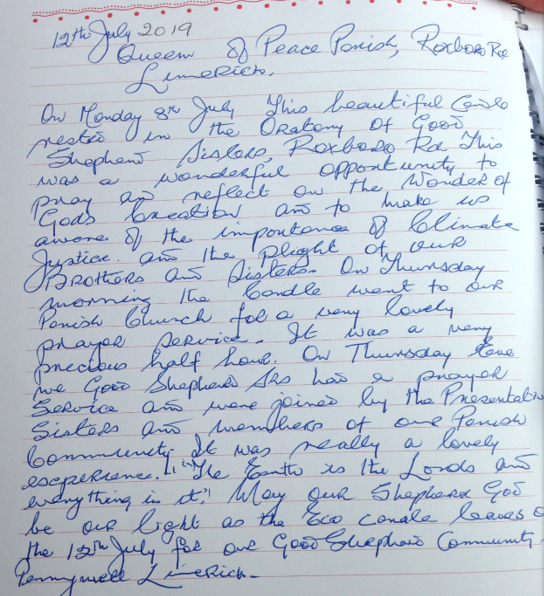 12th July 2019
Queen of Peace Parish, Roxboro Rd
Limerick.
On Monday 8th July This beautiful Candle
rested in the Oratory of Good
Shepherd Sisters, Roxboro Rd This
was a wonderful opportunity to
pray and reflect on the Wonder of
Gods Creation and to make us
aware of the importance of Climate
Justice. and the plight of our
Brothers and Sisters. On Thursday
morning the Candle went to our
Parish Church for a very lovely
prayer service. It was a very
precious half hour. On Thursday Eve
we Good Shepherd Srs had a prayer
Service and were joined by the Presentation
Sisters and members of our Parish
Community. It was really a lovely
experience. "The Earth is the Lords and
everything is it". May our Shepherd God
be our light as the Eco candle leaves on
the 12th July for our Good Shepherd Community
Pennywell Limerick.